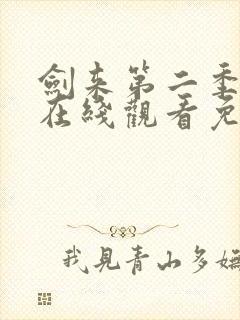 劍来第二季
在綫觀看免
我見青山多嫵